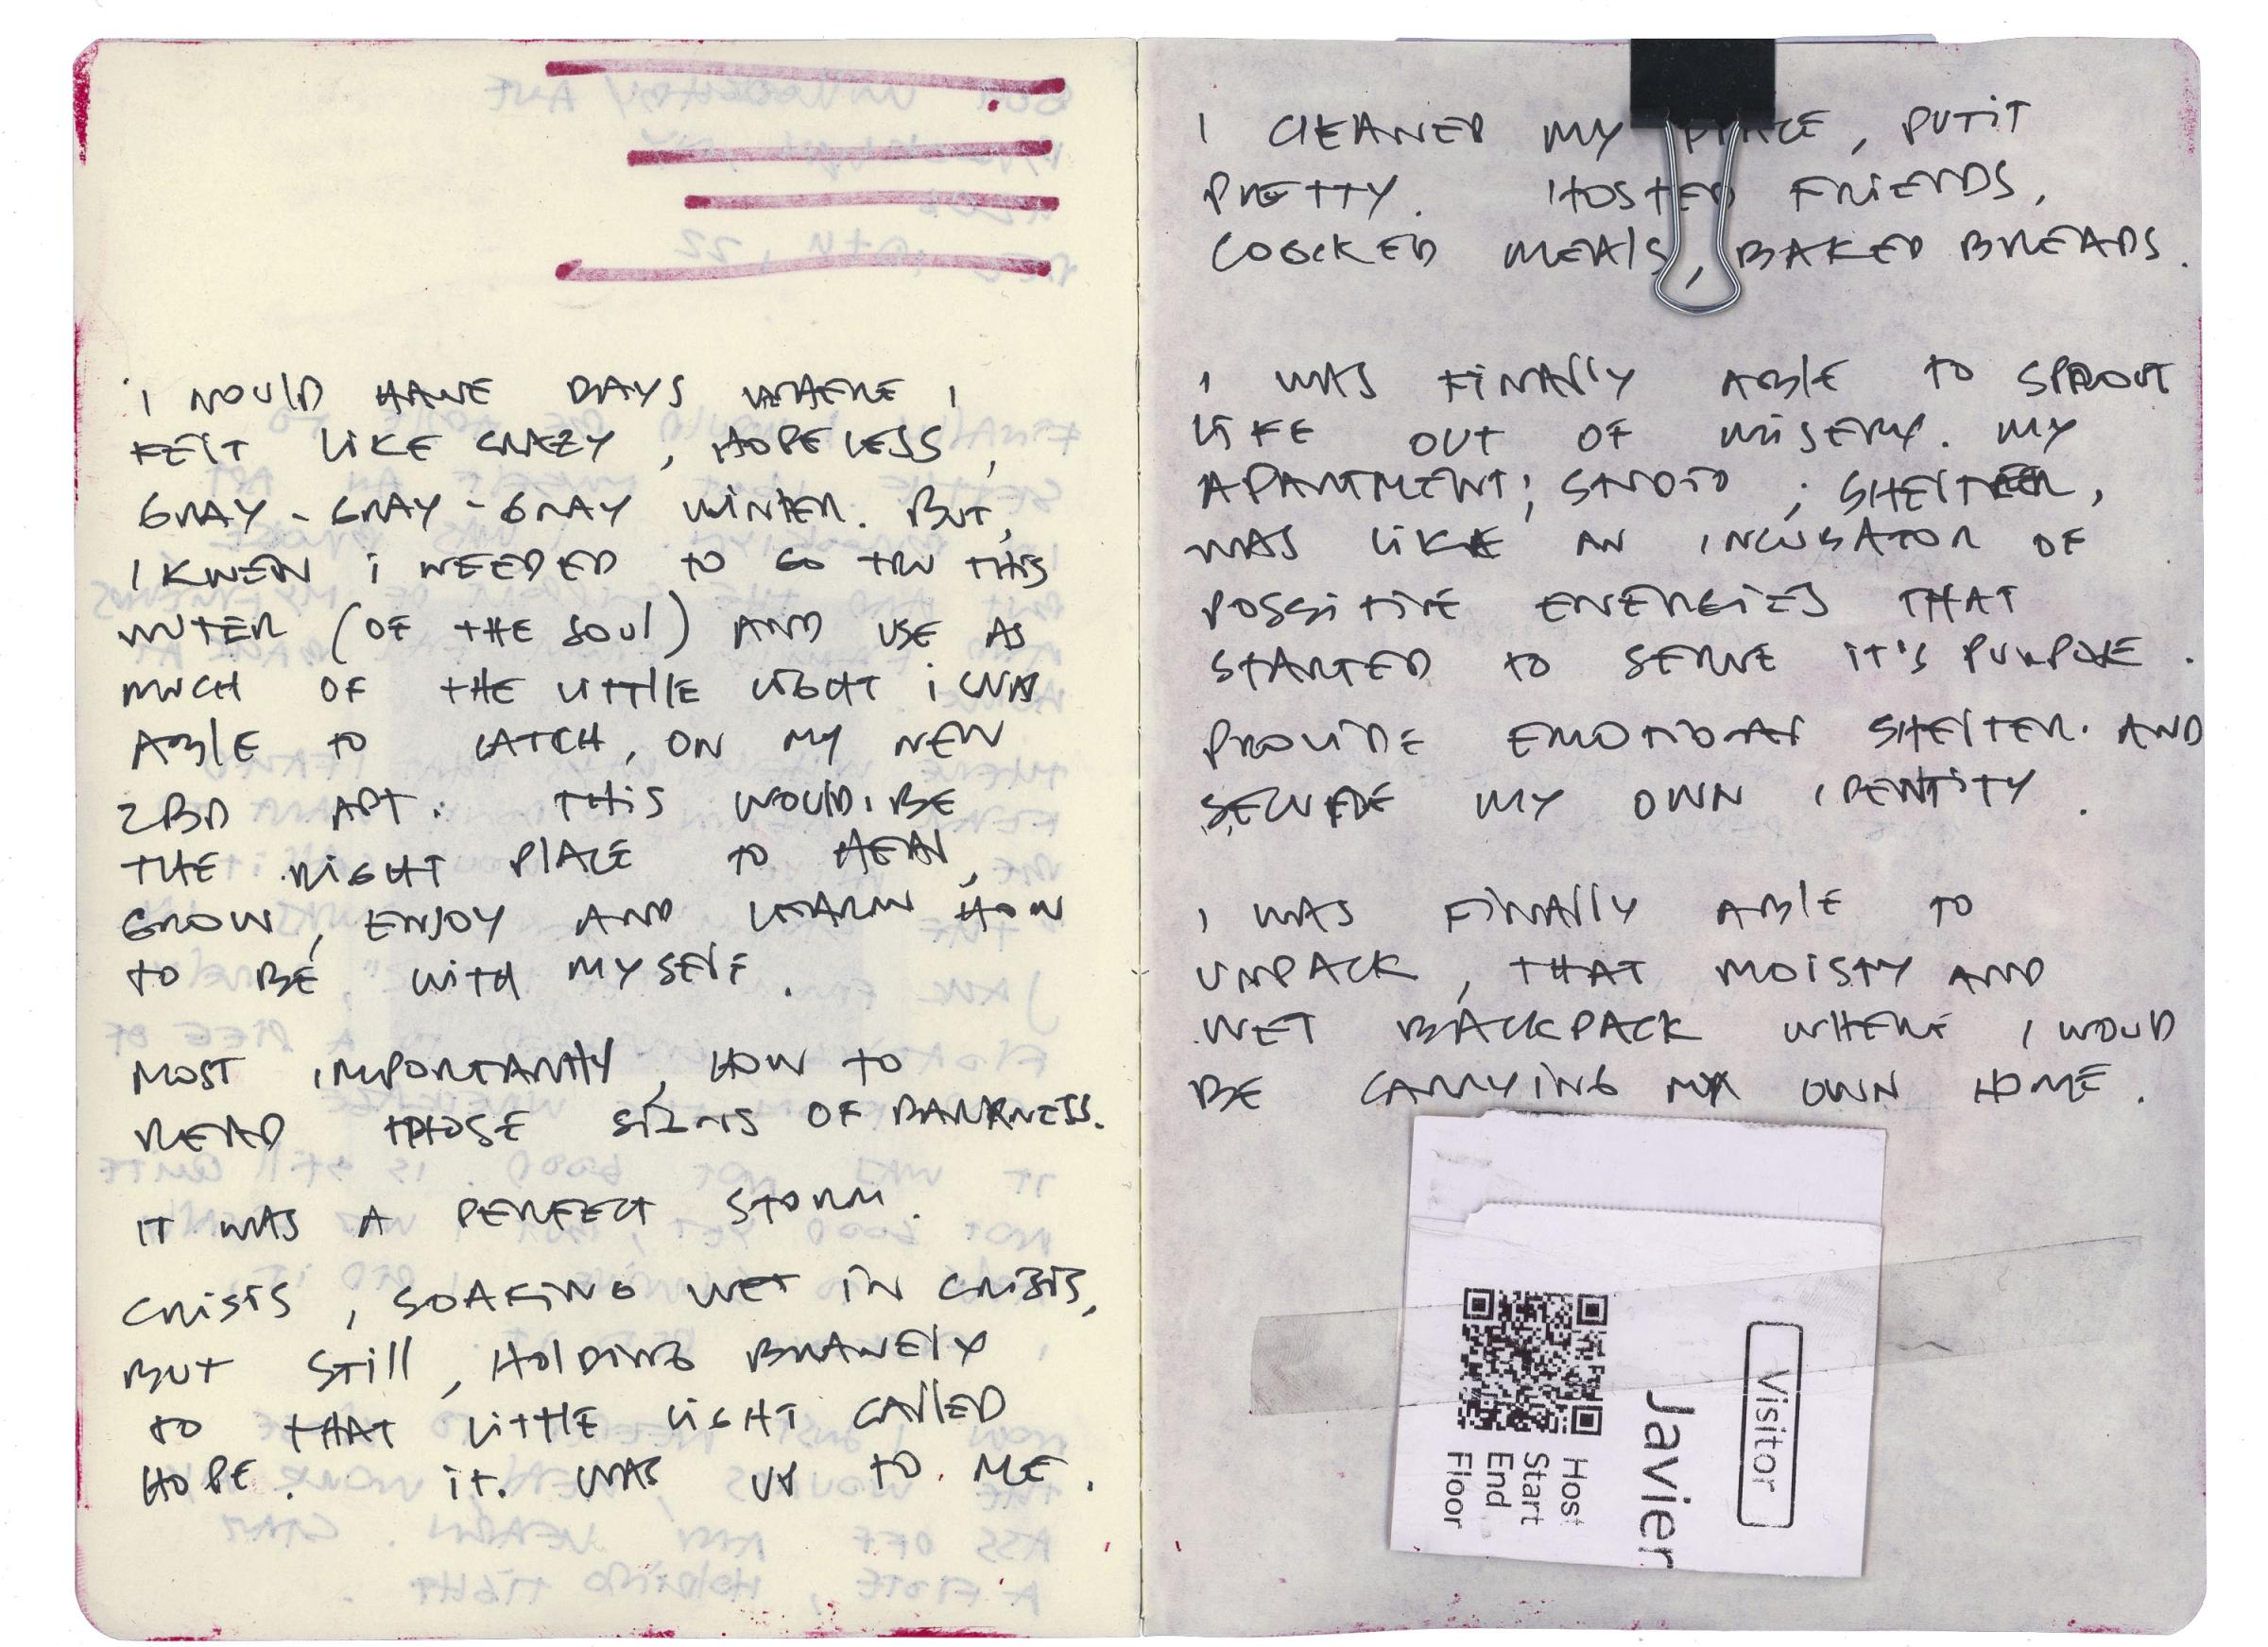 I WOULD HAVE DAYS WHERE I
FELT LIKE CRAZY, HOPELESS,
GRAY - GRAY - GRAY WINTER. BUT,
I KNEW I NEEDED TO GO TRU THIS
WNTER (OF THE SOUL) AND USE AS
MUCH OF THE LITTLE LIGHT I WAS
ABLE TO CATCH, ON MY NEW
2BD APT. THIS WOULD BE
THE RIGHT PLACE TO HEAL,
GROW, ENJOY AND LEARN HOW
TO BE WITH MYSELF.
MOST IMPORTANTLY, HOW TO
READ THOSE SIGNS OF DARKNESS.
IT WAS A PERFECT STORM.
CRISIS, SOAKING WET IN CRISIS,
BUT STILL, HOLDING BRAVELY
TO THAT LITTLE LIGHT CALLED
HOPE. IT. WAS UP TO ME.
I CLEANED MY PLACE, PUT IT
PRETTY. HOSTED FRIENDS,
COOCKED MEALS, BAKED BREADS.
I WAS FINALLY ABLE TO SPROUT
LIFE OUT OF MISERY. MY
APARTMENT; STUDIO; SHELTER,
WAS LIKE AN INCUBATOR OF
POSSITIVE ENERGIES THAT
STARTED TO SERVE IT'S PURPOSE.
PROVIDE EMOTIONAL SHELTER. AND
SECURE MY OWN IDENTITY.
I WAS FINALLY ABLE TO
UNPACK, THAT MOISTY AND
WET BACKPACK WHERE I WOUD
BE CARRYING MY OWN HOME.
Visitor
Javier
Host
Start
End
Floor